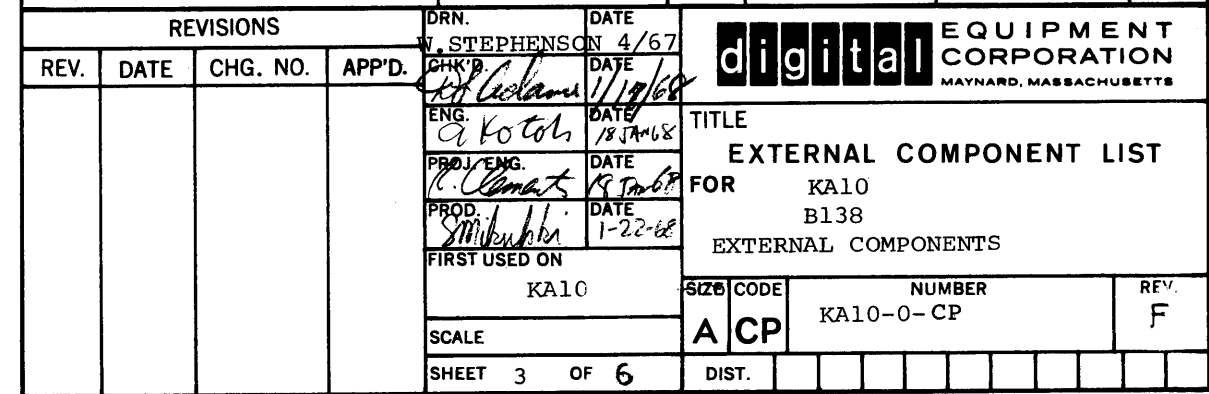 REVISIONS
REV. DATE CHG. NO. APP'D.
DRN. DATE
W.STEPHENSON 4/67
CHK'D. DATE
Adams 1/19/68
ENG. DATE
A Kotok 18 JAN 68
PROJ. ENG. DATE
R. Clements 18 Jan 68
PROD. DATE
1-22-68
FIRST USED ON
KA10
SCALE
SHEET 3 OF 6
digital EQUIPMENT
CORPORATION
MAYNARD, MASSACHUSETTS
TITLE
EXTERNAL COMPONENT LIST
FOR KA10
B138
EXTERNAL COMPONENTS
SIZE CODE NUMBER REV.
A CP KA10-0-CP F
DIST.